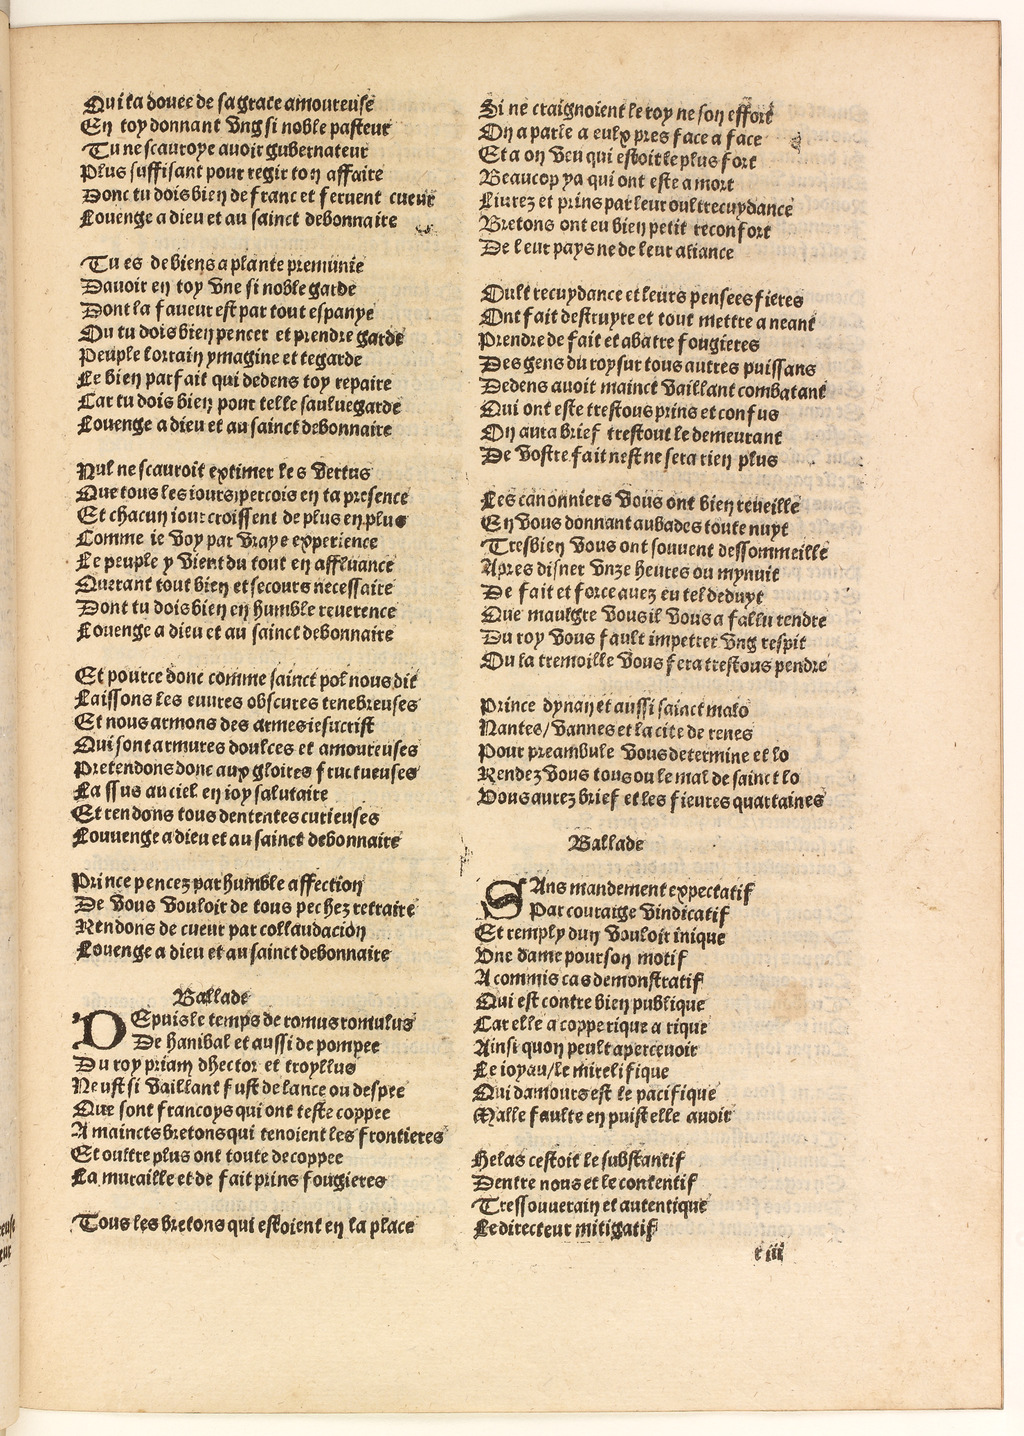 Qui ta douee de sa grace amoureuse
En toy donnant vng si noble pasteur
Tu ne scauroye auoir gubernateur
Plus suffisant pour regir ton affaire
Donc tu dois bien de franc et feruent cueur
Louenge a dieu et au sainct debonnaire

Tu es de biens a plante premunie
Dauoir en toy vne si noble garde
Dont la faueur est par tout espanye
Ou tu dois bien pencer et prendre garde
Peuple lorrain ymagine et regarde
Le bien parfait qui dedens toy repaire
Car tu dois bien pour telle sauluegarde
Louenge a dieu et au sainct debonnaire

Nul ne scauroit extimer les vertus
Que tous les iours percois en ta presence
Et chacun iour croissent de plus en plus
Comme ie voy par vraye experience
Le peuple y vient du tout en affluance
Querant tout bien et secours necessaire
Dont tu dois bien en humble reuerence
Louenge a dieu et au sainct debonnaire

Et pource donc comme sainct pol nous dit
Laissons les euures obscures tenebreuses
Et nous armons des armes iesucrist
Qui sont armures doulces et amoureuses
Pretendons donc aux gloires fructueuses
La ssus au ciel en ioy salutaire
Et rendons tous dententes curieuses
Louuenge a dieu et au sainct debonnaire

Prince pencez par humble affection
De vous vouloir de tous pechez retraire
Rendons de cueur par collaudacion
Louenge a dieu et au sainct debonnaire

Ballade
DEpuis le temps de romus romulus
De hanibal et aussi de pompee
Du roy priam dhector et troyllus
Ne ust si vaillant fust de lance ou despee
Que sont francoys qui ont teste coppee
A maincts bretons qui tenoient les frontieres
Et oultre plus ont toute decoppee
La muraille et de fait prins fougieres

Tous les bretons qui estoient en la place
Si ne craignoient le roy ne son effort
On a parle a eulx pres face a face
Et a on veu qui estoit le plus fort
Beaucop ya qui ont este a mort
Liurez et prins par leur oultrecuydance
Bretons ont eu bien petit reconfort
De leur pays ne de leur aliance

Oult recuydance et leurs pensees fieres
Ont fait destruyre et tout mettre a neant
Prendre de fait et abatre fougieres
Des gens du roy sur tous autres puissans
Dedens auoit mainct vaillant combatant
Qui ont este trestous prins et confus
On aura brief trestout le demeurant
De vostre fait nest ne sera rien plus

Les canonniers vous ont bien reueille
En vous donnant aubades toute nuyt
Tresbien vous ont souuent dessommeille
Apres disner vnze heures ou mynuit
De fait et force auez eu tel deduyt
Que maulgre vous il vous a fallu rendre
Du roy vous fault impetrer vng respit
Ou la tremoille vous fera trestous pendre

Prince dynan et aussi sainct malo
Nantes/ vannes et la cite de renes
Pour preambule vous determine et lo
Rendez vous tous ou le mal de sainct lo
Vous aurez brief et les fieures quartaines

Ballade
SAns mandement expectatif
Par couraige vindicatif
Et remply dun vouloir inique
Vne dame pour son motif
A commis cas demonstratif
Qui est contre bien publique
Car elle a copp e rique a rique
Ainsi quon peult apercevoir
Le ioyau/le mirelifique
Qui damours est le pacifique
Malle faulte en puist elle auoir

Helas cestoit le substantif
Dentre nous et le contentif
Tressouuerain et autentique
Le directeur mitigatif
e iii